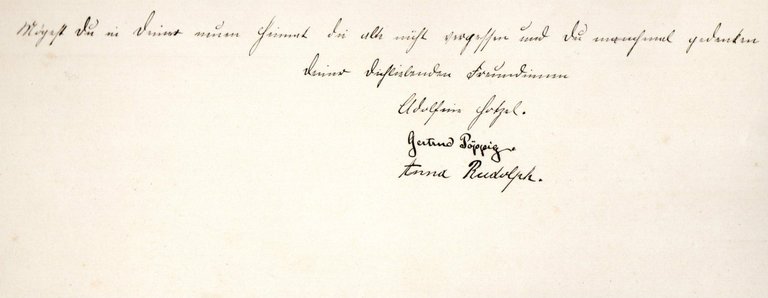 Mögest Du in Deiner neuen Heimat die alte nicht vergessen und Du manchmal gedenken
Deiner Dichliebenden Freundinnen
Adolfine Hotzel.
Gertrud Pöppig.
Anna Rudolph.